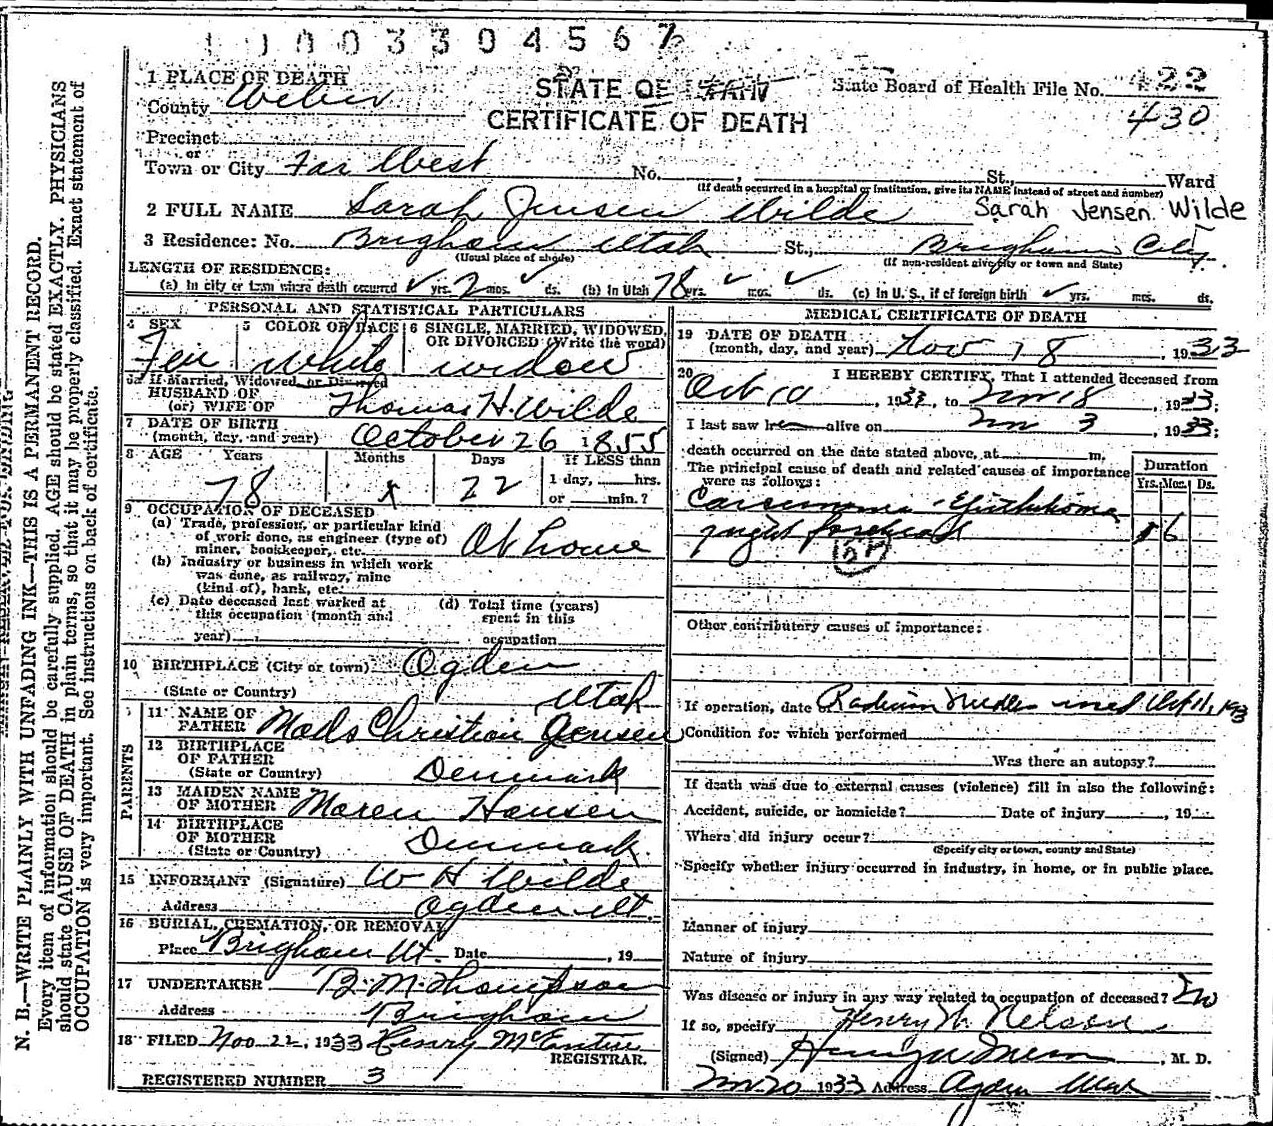 0 0 3 3 0 4 5 6 7
1 PLACE OF DEATH
County Weber
STATE OF UTAH
CERTIFICATE OF DEATH
State Board of Health File No. 422
430
Precinct
or
Town or City Far West No. , St., Ward
(If death occurred in a hospital or institution, give its NAME instead of street and number)
2 FULL NAME Sarah Jensen Wilde Sarah Jensen Wilde
3 Residence: No. Brigham Utah St., Brigham City
(Usual place of abode) (If non-resident give city or town and State)
LENGTH OF RESIDENCE:
(a) In city or town where death occurred yrs. 2 mos. ds. (b) In Utah 78 yrs. mos. ds. (c) In U. S., if of foreign birth yrs. mos. ds.
PERSONAL AND STATISTICAL PARTICULARS
4 SEX
Fem
5 COLOR OR RACE
White
6 SINGLE, MARRIED, WIDOWED,
OR DIVORCED (Write the word)
widow
6a If Married, Widowed, or Divorced
HUSBAND OF
(or) WIFE OF Thomas H. Wilde
7 DATE OF BIRTH
(month, day, and year) October 26 1855
8 AGE Years Months Days If LESS than
78 x 22 1 day, hrs.
or min.?
9 OCCUPATION OF DECEASED
(a) Trade, profession, or particular kind
of work done, as engineer (type of)
miner, bookkeeper, etc. At home
(b) Industry or business in which work
was done, as railway, mine
(kind of), bank, etc.
(c) Date deceased last worked at
this occupation (month and
year)
(d) Total time (years)
spent in this
occupation
10 BIRTHPLACE (City or town) Ogden
(State or Country) Utah
PARENTS
11 NAME OF
FATHER Mads Christian Jensen
12 BIRTHPLACE
OF FATHER
(State or Country) Denmark
13 MAIDEN NAME
OF MOTHER Maren Hansen
14 BIRTHPLACE
OF MOTHER
(State or Country) Denmark
15 INFORMANT (Signature) W H Wilde
Address Ogden Ut.
16 BURIAL, CREMATION, OR REMOVAL
Place Brigham Ut. Date , 19
17 UNDERTAKER B. M. Thompson
Address Brigham
18 FILED Nov 22, 1933 Henry McEntire
REGISTRAR.
REGISTERED NUMBER 3
MEDICAL CERTIFICATE OF DEATH
19 DATE OF DEATH
(month, day, and year) Nov 18, 1933
20 I HEREBY CERTIFY, That I attended deceased from
Oct 10, 1933, to Nov 18, 1933;
I last saw her alive on Nov 3, 1933;
death occurred on the date stated above, at m,
The principal cause of death and related causes of importance
were as follows:
Duration
Yrs. Mos. Ds.
Carcinoma - Epithelioma
right forehead 6
Other contributory causes of importance:
If operation, date of Radium Needles used Oct 11, 193
Condition for which performed
Was there an autopsy?
If death was due to external causes (violence) fill in also the following:
Accident, suicide, or homicide? Date of injury , 19
Where did injury occur?
(Specify city or town, county and State)
Specify whether injury occurred in industry, in home, or in public place.
Manner of injury
Nature of injury
Was disease or injury in any way related to occupation of deceased? No
If so, specify Henry W. Nelson
(Signed) , M. D.
Nov 20 1933 Address Ogden Utah
N. B.—WRITE PLAINLY WITH UNFADING INK—THIS IS A PERMANENT RECORD.
Every item of information should be carefully supplied. AGE should be stated EXACTLY. PHYSICIANS
should state CAUSE OF DEATH in plain terms, so that it may be properly classified. Exact statement of
OCCUPATION is very important. See instructions on back of certificate.